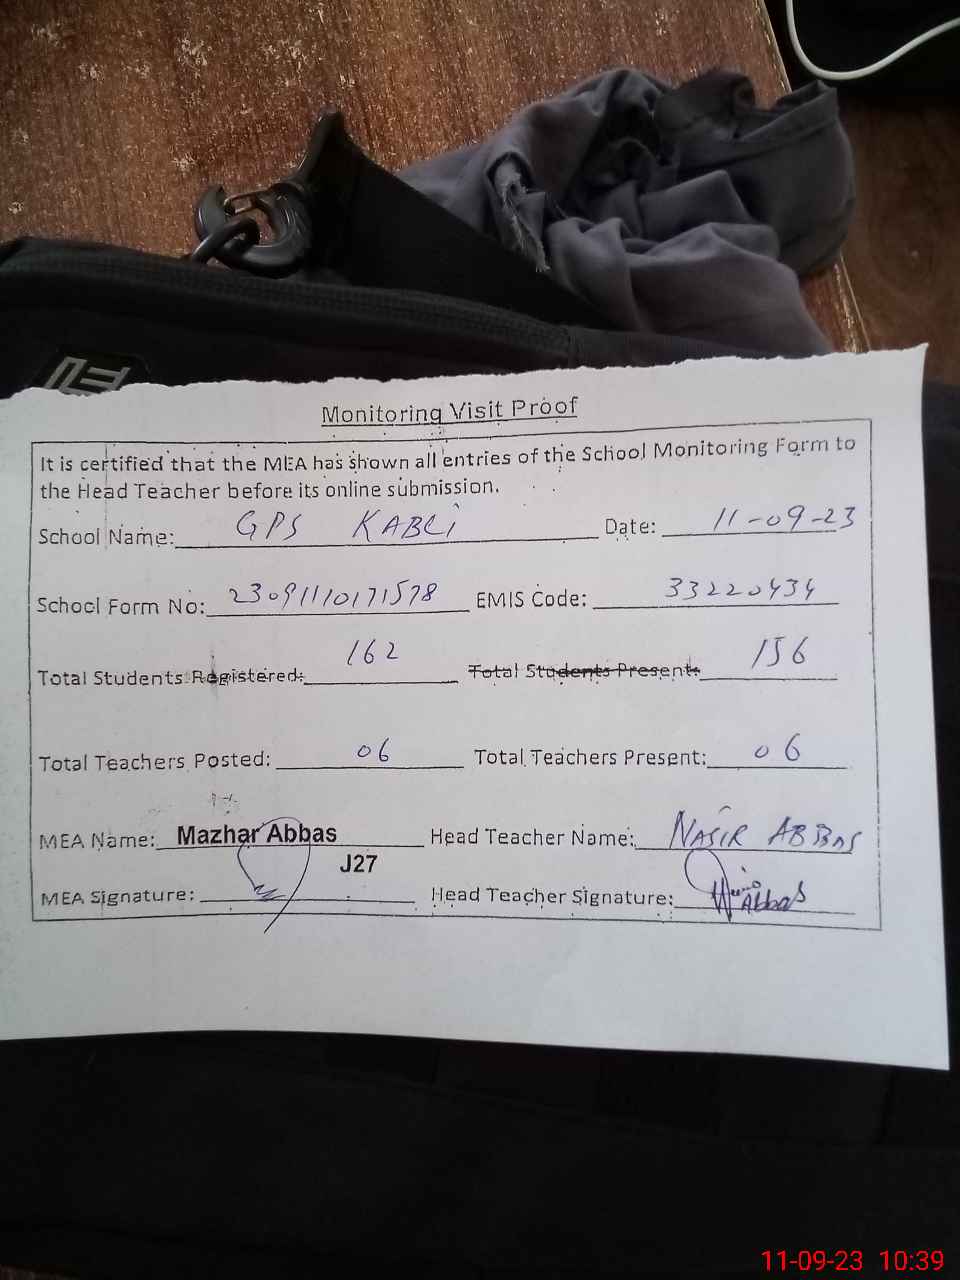 Monitoring Visit Proof
It is certified that the MEA has shown all entries of the School Monitoring Form to
the Head Teacher before its online submission.
School Name: GPS KABLI Date: 11-09-23
School Form No: 23091110171578 EMIS Code: 33220434
Total Students Registered: 162 Total Students Present: 156
Total Teachers Posted: 06 Total Teachers Present: 06
MEA Name: Mazhar Abbas Head Teacher Name: NASIR ABBAS
J27
MEA Signature: Head Teacher Signature: Abbas
11-09-23 10:39